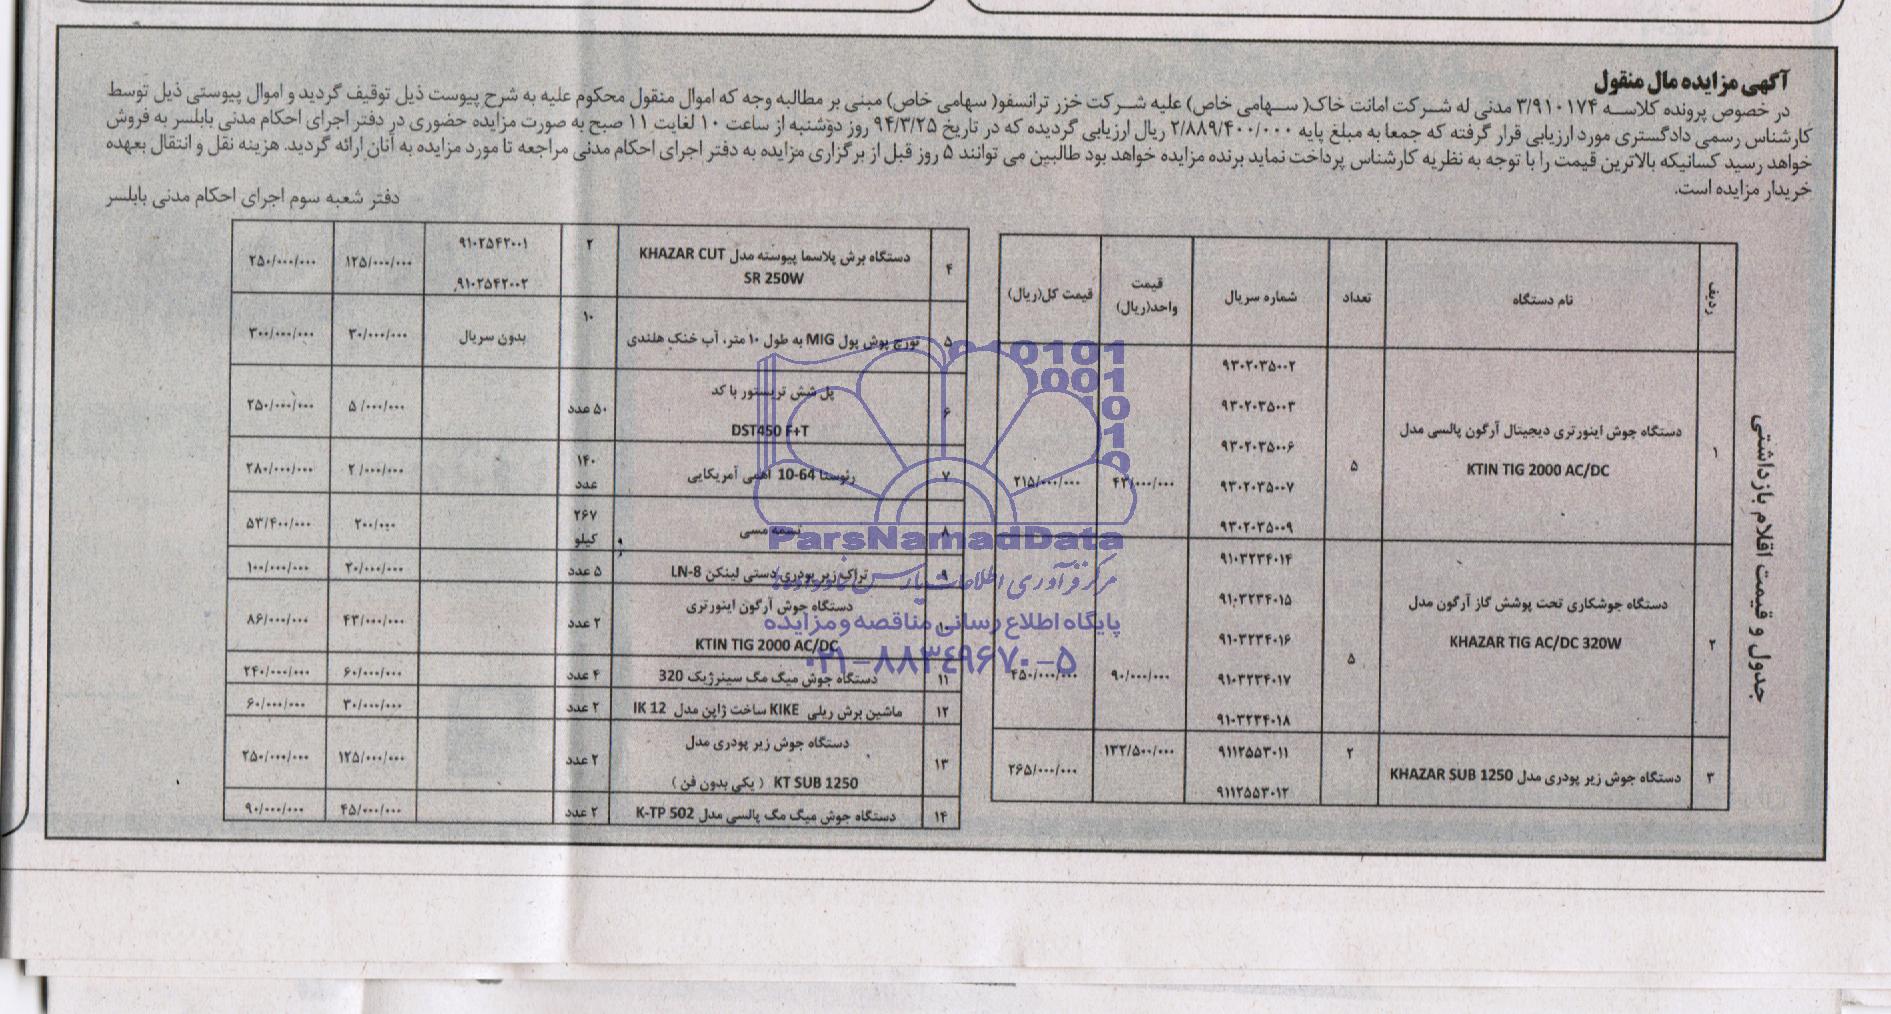 آگهی مزایده مال منقول
در خصوص پرونده کلاسه ۳/۹۱۰۱۷۴ مدنی له شرکت امانت خاک( سهامی خاص) علیه شرکت خزر ترانسفو( سهامی خاص) مبنی بر مطالبه وجه که اموال منقول محکوم علیه به شرح پیوست ذیل توقیف گردید و اموال پیوستی ذیل توسط
کارشناس رسمی دادگستری مورد ارزیابی قرار گرفته که جمعا به مبلغ پایه ۲/۸۸۹/۴۰۰/۰۰۰ ریال ارزیابی گردیده که در تاریخ ۹۴/۳/۲۵ روز دوشنبه از ساعت ۱۰ لغایت ۱۱ صبح به صورت مزایده حضوری در دفتر اجرای احکام مدنی بابلسر به فروش
خواهد رسید کسانیکه بالاترین قیمت را با توجه به نظریه کارشناس پرداخت نماید برنده مزایده خواهد بود طالبین می توانند ۵ روز قبل از برگزاری مزایده به دفتر اجرای احکام مدنی مراجعه تا مورد مزایده به آنان ارائه گردید. هزینه نقل و انتقال بعهده
خریدار مزایده است.
دفتر شعبه سوم اجرای احکام مدنی بابلسر
جدول و قیمت اقلام بازداشتی
ردیف نام دستگاه تعداد شماره سریال قیمت واحد(ریال) قیمت کل(ریال)
۱ دستگاه جوش اینورتری دیجیتال آرگون پالسی مدل
KTIN TIG 2000 AC/DC
۵
۹۳۰۲۰۳۵۰۰۲
۹۳۰۲۰۳۵۰۰۳
۹۳۰۲۰۳۵۰۰۶
۹۳۰۲۰۳۵۰۰۷
۹۳۰۲۰۳۵۰۰۹
۴۳/۰۰۰/۰۰۰ ۲۱۵/۰۰۰/۰۰۰
۲ دستگاه جوشکاری تحت پوشش گاز آرگون مدل
KHAZAR TIG AC/DC 320W
۵
۹۱۰۳۲۳۴۰۱۴
۹۱۰۳۲۳۴۰۱۵
۹۱۰۳۲۳۴۰۱۶
۹۱۰۳۲۳۴۰۱۷
۹۱۰۳۲۳۴۰۱۸
۹۰/۰۰۰/۰۰۰ ۴۵۰/۰۰۰/۰۰۰
۳ دستگاه جوش زیر پودری مدل KHAZAR SUB 1250
۲
۹۱۱۲۵۵۳۰۱۱
۹۱۱۲۵۵۳۰۱۲
۱۳۲/۵۰۰/۰۰۰ ۲۶۵/۰۰۰/۰۰۰
۴ دستگاه برش پلاسما پیوسته مدل KHAZAR CUT
SR 250W
۲
۹۱۰۲۵۴۲۰۰۱
۹۱۰۲۵۴۲۰۰۲
۱۲۵/۰۰۰/۰۰۰ ۲۵۰/۰۰۰/۰۰۰
۵ تورچ پوش پول MIG به طول ۱۰ متر، آب خنک هلندی ۱۰ بدون سریال ۳۰/۰۰۰/۰۰۰ ۳۰۰/۰۰۰/۰۰۰
۶ پل شش تریستور با کد
DST450 F+T
۵۰ عدد ۵/۰۰۰/۰۰۰ ۲۵۰/۰۰۰/۰۰۰
۷ رئوستا 64-10 اهمی آمریکایی ۱۴۰ عدد ۲/۰۰۰/۰۰۰ ۲۸۰/۰۰۰/۰۰۰
۸ تسمه مسی ۲۶۷ کیلو ۲۰۰/۰۰۰ ۵۳/۴۰۰/۰۰۰
۹ تراک زیر پودری دستی لینکن LN-8 ۵ عدد ۲۰/۰۰۰/۰۰۰ ۱۰۰/۰۰۰/۰۰۰
۱۰ دستگاه جوش آرگون اینورتری
KTIN TIG 2000 AC/DC
۲ عدد ۴۳/۰۰۰/۰۰۰ ۸۶/۰۰۰/۰۰۰
۱۱ دستگاه جوش میگ مگ سینرژیک 320 ۴ عدد ۶۰/۰۰۰/۰۰۰ ۲۴۰/۰۰۰/۰۰۰
۱۲ ماشین برش ریلی KIKE ساخت ژاپن مدل IK 12 ۲ عدد ۳۰/۰۰۰/۰۰۰ ۶۰/۰۰۰/۰۰۰
۱۳ دستگاه جوش زیر پودری مدل
KT SUB 1250 ( یکی بدون فن )
۲ عدد ۱۲۵/۰۰۰/۰۰۰ ۲۵۰/۰۰۰/۰۰۰
۱۴ دستگاه جوش میگ مگ پالسی مدل K-TP 502 ۲ عدد ۴۵/۰۰۰/۰۰۰ ۹۰/۰۰۰/۰۰۰
ParsNamadData
مرکز فرآوری اطلاعات پارس نماد داده ها
پایگاه اطلاع رسانی مناقصه و مزایده
۰۲۱-۸۸۳۴۹۶۷۰-۵